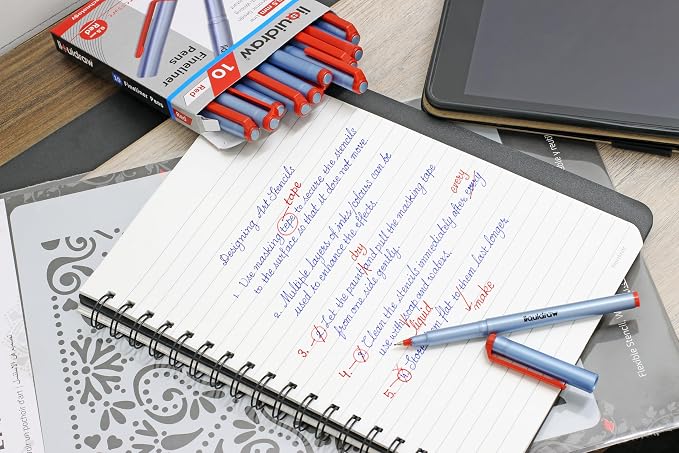 liquidraw
Fineliner
Pens
10
Red
liquidraw
10 Fineliner Pens
Red
Designing Art Stencils
tape
1. Use masking tepe to secure the stencils
to the surface so that it dose not move.
2. Multiple layers of inks/colours can be
used to enhance the effects.
dry
3. Let the paint and pull the masking tape
from one side gently.
every
4. Clean the stencils immediately after
use with soap and waters.
liquid
make
5. flat to them last longer
liquidraw
Flexible Stencil